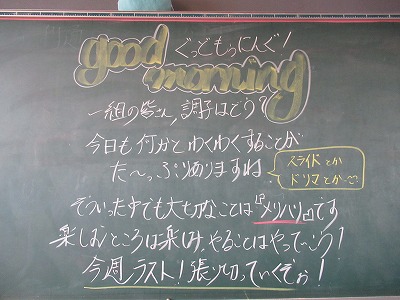 good morning
ぐっどもっにんぐ!
一組の皆さん,調子はどう?
今日も何かとわくわくすることが
た〜っぷりありますね
スライドとか
ドリマとか〜
そういった中でも大切なことは『メリハリ』です
楽しむところは楽しみ,やることはやっていこう!
今週ラスト!張り切っていくぞぉ!